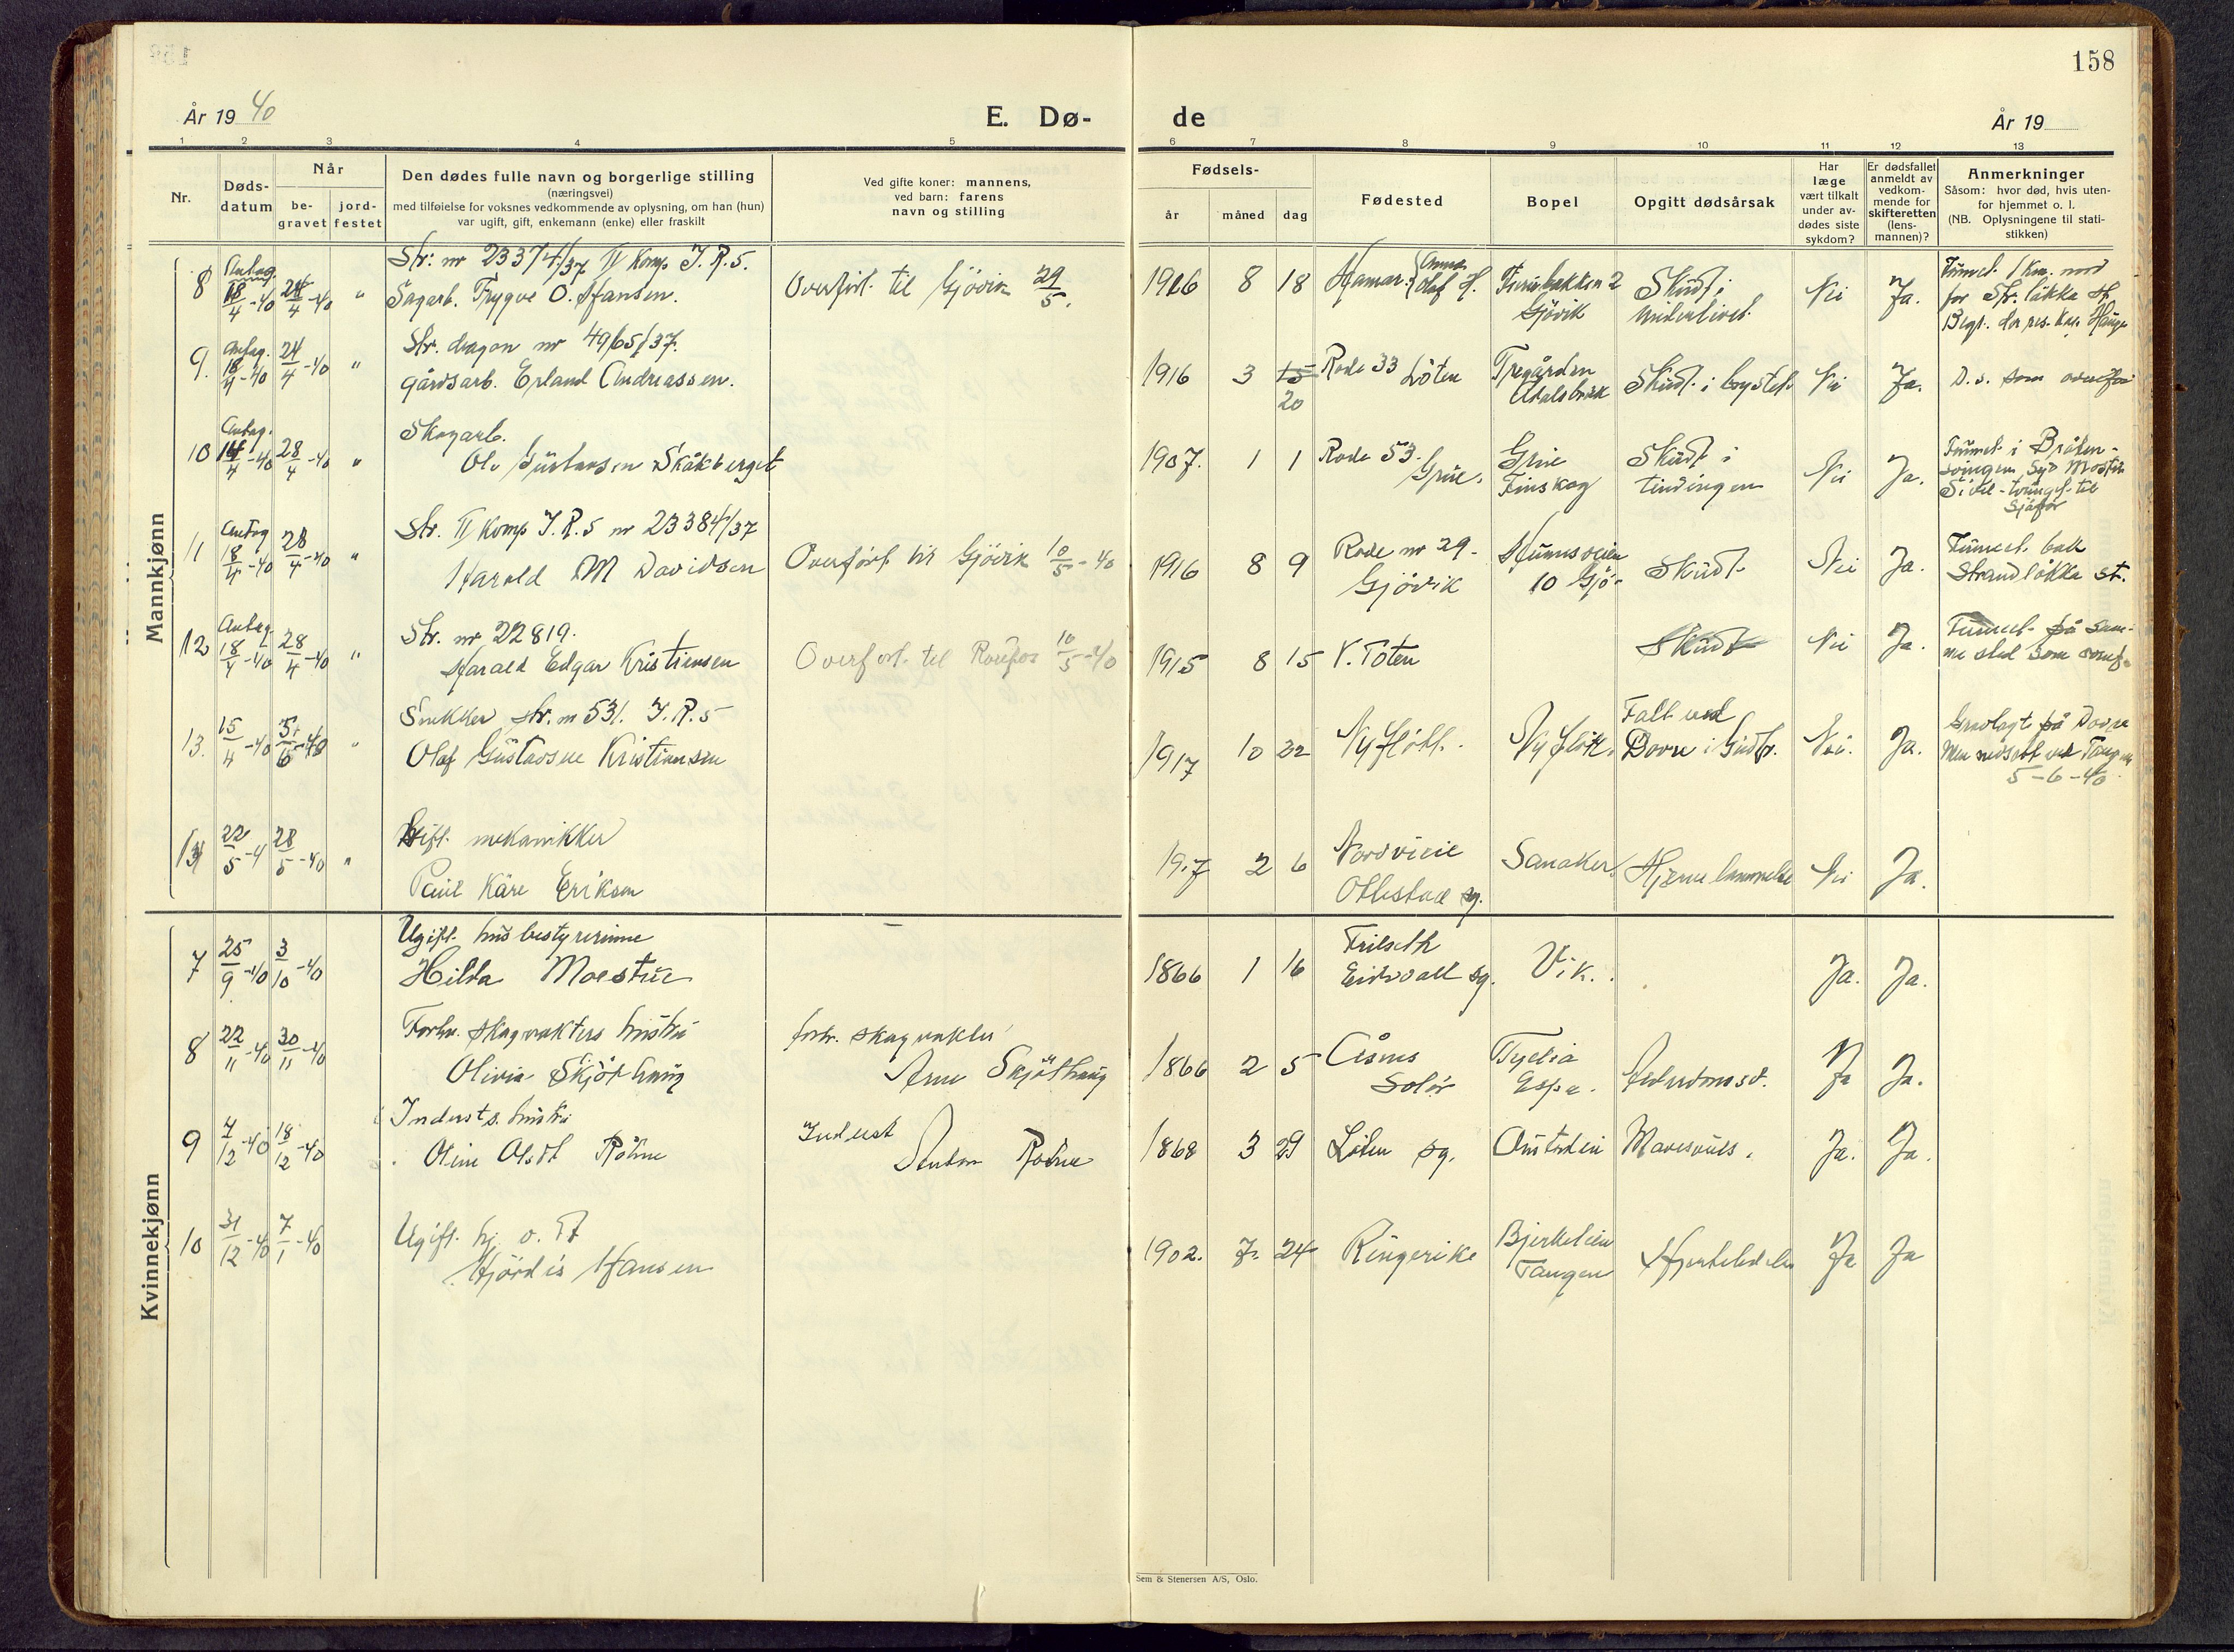 158
År 19 40
E. Dø-
de
År 19
1 2 3 4 5 6 7 8 9 10 11 12 13
Nr.
Døds-
datum
Når
be-
gravet
jord-
festet
Den dødes fulle navn og borgerlige stilling
(næringsvei)
med tilføielse for voksnes vedkommende av oplysning, om han (hun)
var ugift, gift, enkemann (enke) eller fraskilt
Ved gifte koner: mannens,
ved barn: farens
navn og stilling
Fødsels-
år
måned
dag
Fødested
Bopel
Opgitt dødsårsak
Har
læge
vært tilkalt
under av-
dødes siste
sykdom?
Er dødsfallet
anmeldt av
vedkom-
mende for
skifteretten
(lens-
mannen)?
Anmerkninger
Såsom: hvor død, hvis uten-
for hjemmet o. l.
(NB. Oplysningene til stati-
stikken)
Mannkjønn
8 Antag. 18/4-40 24/4-40 "
Str: nr 23374/37 II Komp I.R.5.
Sagarb. Trygve O. Hansen.
Overført til Gjövik 29/5.
1916 8 18 Hamar. Anna Olaf H.
Gjövik
Skudt i
Underlivet
Nei Ja.
Funnet 1 km. nord
for Str. løkka st
9. Antag. 18/4-40 24/4-40 "
Str. dragon nr 4965/37.
gårdsarb. Erland Andreassen.
1916 3 15 20 Rode 33 Löten
Skudt i brystet Nei Ja. D.s. som ovenfor
10 Antag. 14/4-40 28/4-40 "
Skogarb.
Ole Gustavsen Skåkberget
1907. 1 1 Rode 53. Grue.
Grue
Finskog
Skudt i
tindingen
Nei Ja.
Funnet i Bråten-
svingen syd
11 Antag 18/4-40 28/4-40 "
Str. II Komp I.R.5 nr 23384/37
Harald M Davidsen
Overført til Gjövik 10/5-40
1916 8 9 Rode nr 29-
Gjövik
Hunnsveien
10 Gjö-
Skudt Nei Ja.
Funnet bak
Strandløkka st.
12 Antag. 18/4-40 28/4-40 "
Str. nr 22819.
Harald Edgar Kristiansen
Overført til Raufos 10/5-40
1915 8 15 V. Toten
Skudt Nei Ja.
Funnet på sam-
me sted som ovenf.
13. 15/4-40 5/6-40 "
Snekker str. nr 531. I.R.5
Olaf Gustavsen Kristiansen
1917 10 22 Nyfløtt.
Falt ved
Dovre i Gudbr. Nei. Ja.
Gravlagt på Dovre
Men nedsatt ved Tangen
5-6-40.
13 22/5-4 28/5-40 "
Gift. mekanikker
Paul Kåre Eriksen
1917 2 6 Nordvi
Ottestad sg.
Sanaker Hjernelammelse Nei Ja.
Kvinnekjønn
7 25/9-40 3/10-40
Ugift. husbestyrerinne
Hilda Moestue
1866 1 16
Eidsvall sg. Vik. Ja. Ja.
8 22/11-40 30/11-40
Forhv. skogvakters hustru
Olivia Skjöthaug
forhv. skogvakter
Arne Skjöthaug
1866 2 5 Åsnes
Solør
Espa. Ja Ja.
9 7/12-40 18/12-40
Industs. hustru
Oline Olsdt Röhne
Indust
Anton Rödne
1868 3 29 Löten sg. Ja. Ja.
10 31/12-40 7/1-40
Ugift. hj.
Hjördis Hansen
1902. 7. 24 Ringerike
Bjerkelien
Tangen
Ja Ja
Sem & Stenersen A/S, Oslo.